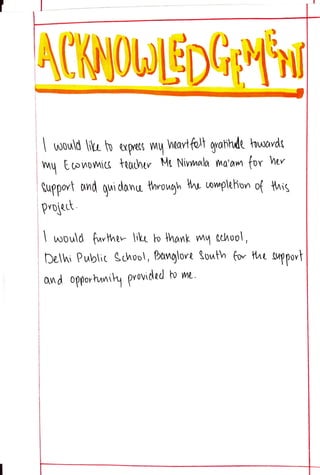 ACKNOWLEDGEMENT
I would like to express my heartfelt gratitude towards
my Economics teacher Ms Nirmala ma'am for her
support and guidance through the completion of this
project.
I would further like to thank my school,
Delhi Public School, Banglore South for the support
and opportunity provided to me.